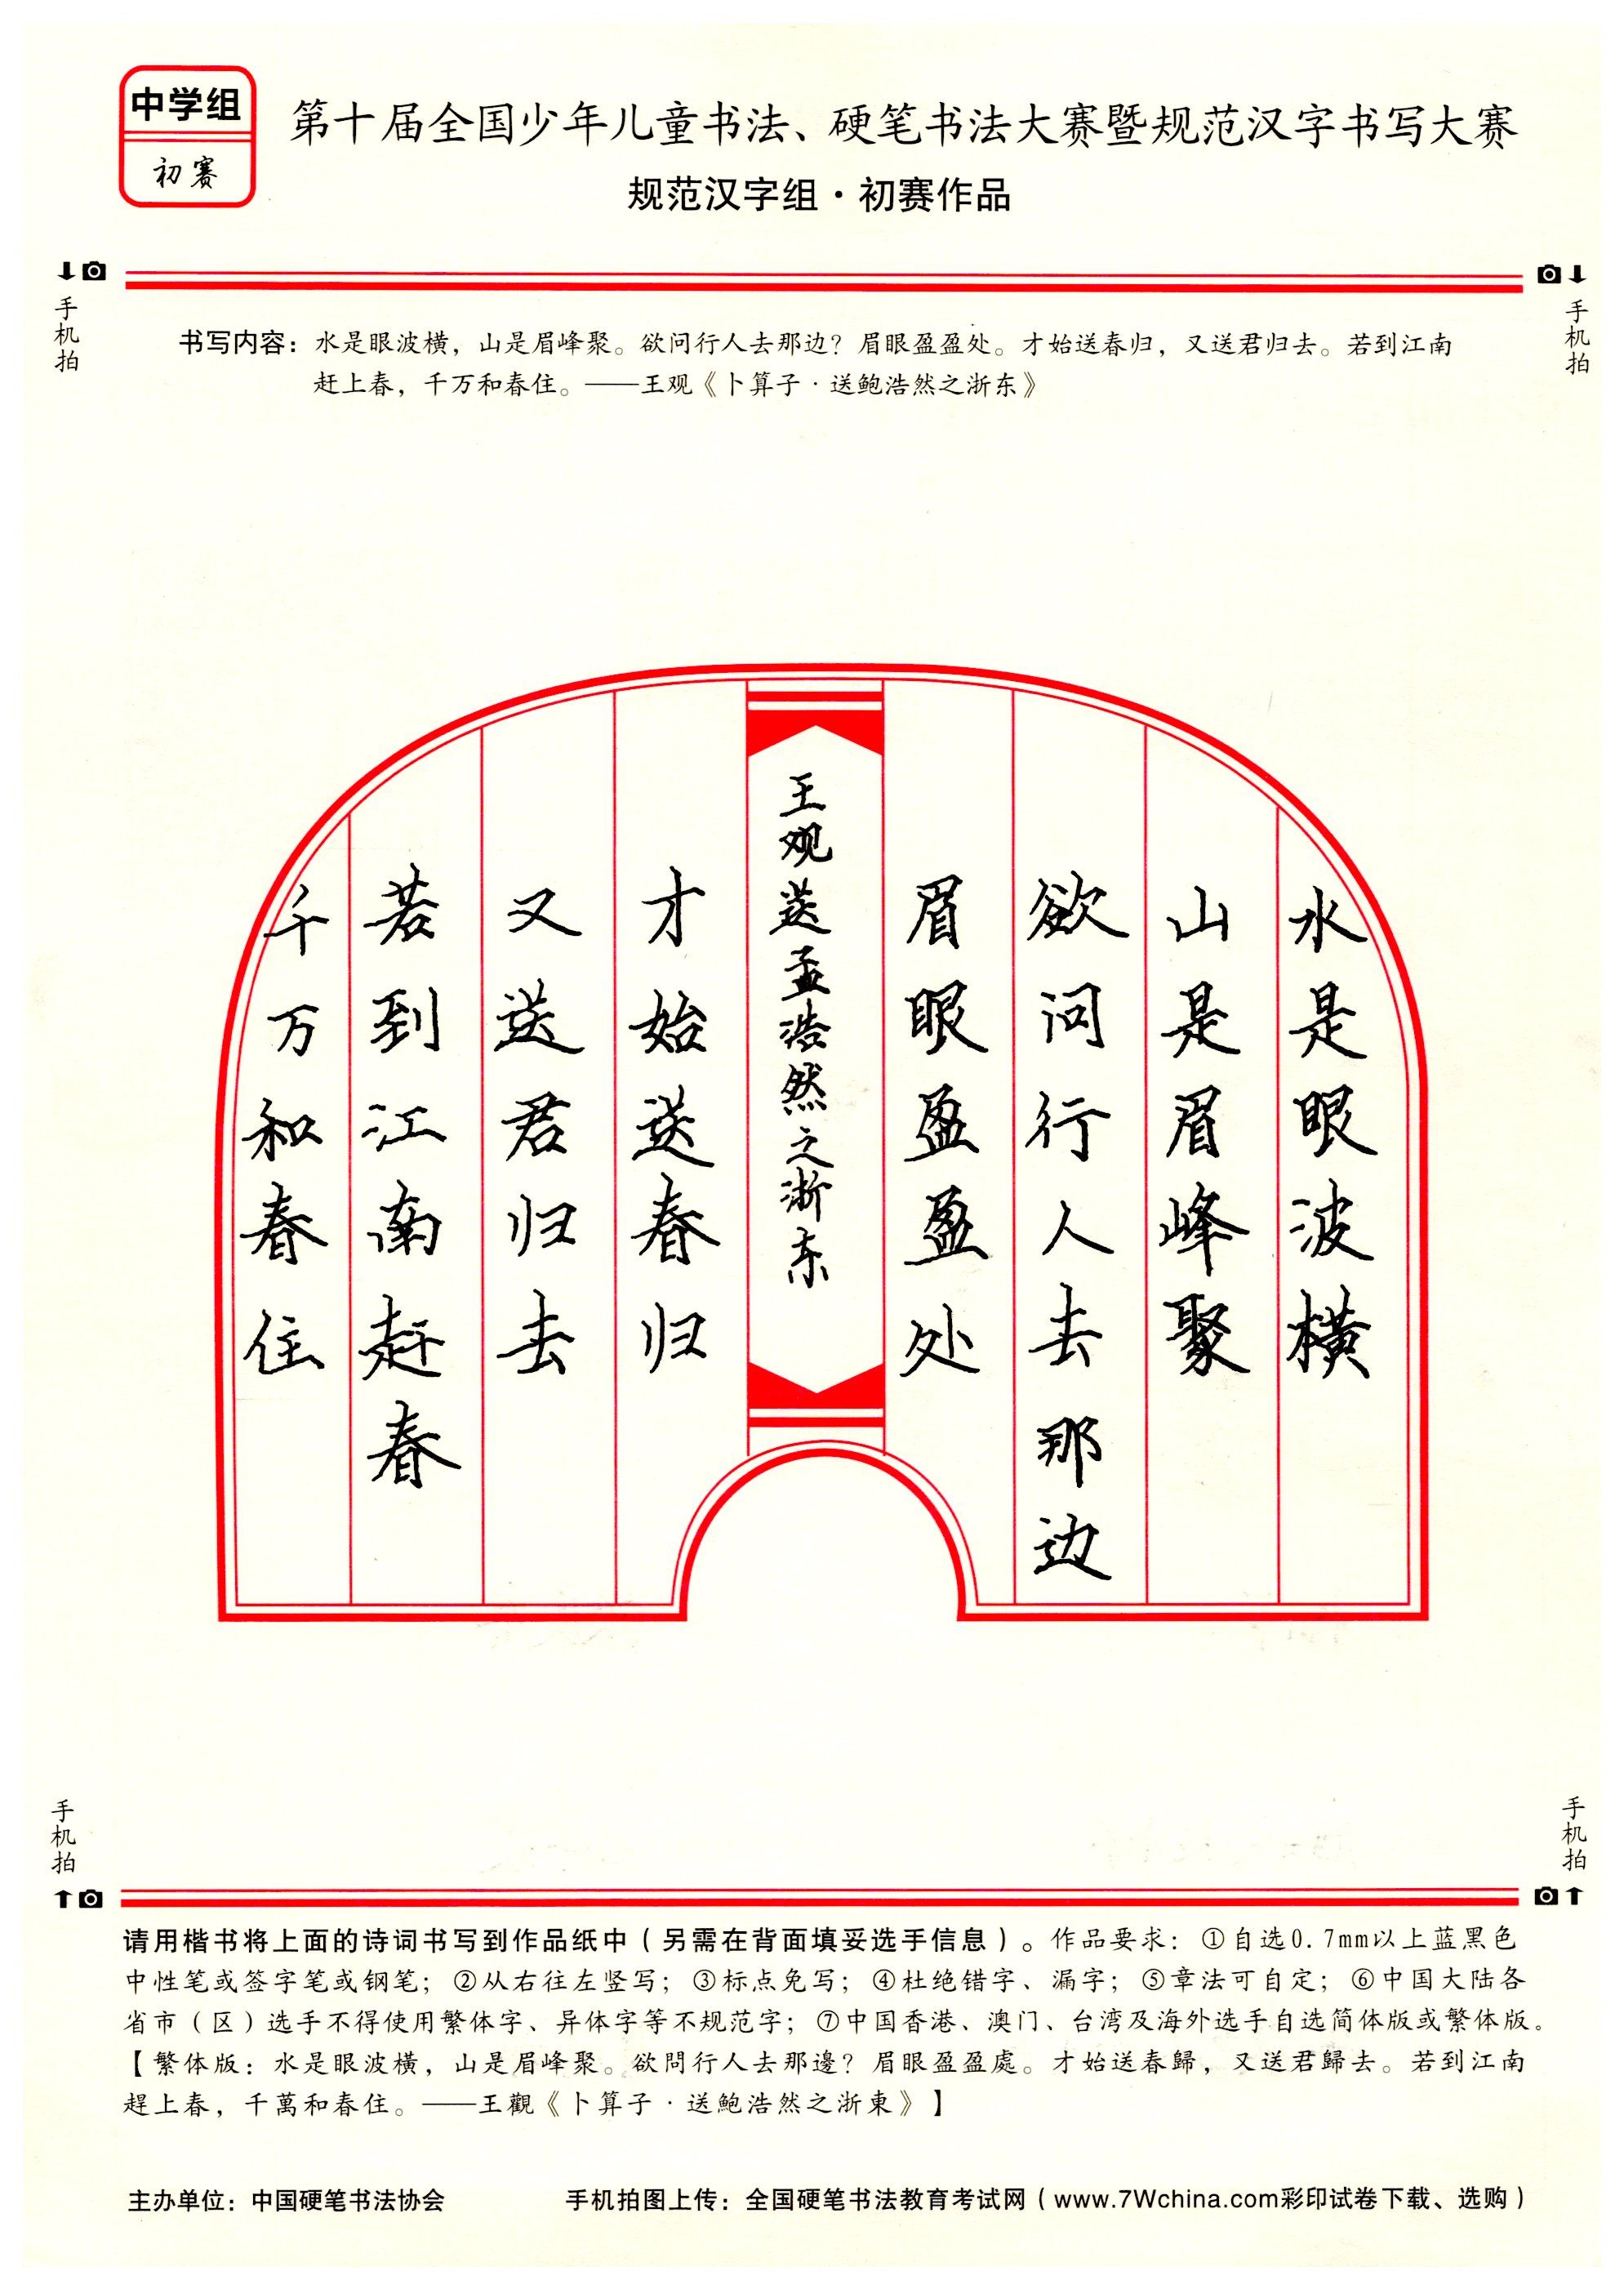 中学组
初赛
第十届全国少年儿童书法、硬笔书法大赛暨规范汉字书写大赛
规范汉字组·初赛作品
手机拍
手机拍
书写内容：水是眼波横，山是眉峰聚。欲问行人去那边？眉眼盈盈处。才始送春归，又送君归去。若到江南
赶上春，千万和春住。——王观《卜算子·送鲍浩然之浙东》
水是眼波横
山是眉峰聚
欲问行人去那边
眉眼盈盈处
王观送孟浩然之浙东
才始送春归
又送君归去
若到江南赶春
千万和春住
手机拍
手机拍
请用楷书将上面的诗词书写到作品纸中（另需在背面填妥选手信息）。作品要求：①自选0.7mm以上蓝黑色
中性笔或签字笔或钢笔；②从右往左竖写；③标点免写；④杜绝错字、漏字；⑤章法可自定；⑥中国大陆各
省市（区）选手不得使用繁体字、异体字等不规范字；⑦中国香港、澳门、台湾及海外选手自选简体版或繁体版。
【繁体版：水是眼波橫，山是眉峰聚。欲問行人去那邊？眉眼盈盈處。才始送春歸，又送君歸去。若到江南
趕上春，千萬和春住。——王觀《卜算子·送鮑浩然之浙東》】
主办单位：中国硬笔书法协会
手机拍图上传：全国硬笔书法教育考试网（www.7Wchina.com彩印试卷下载、选购）